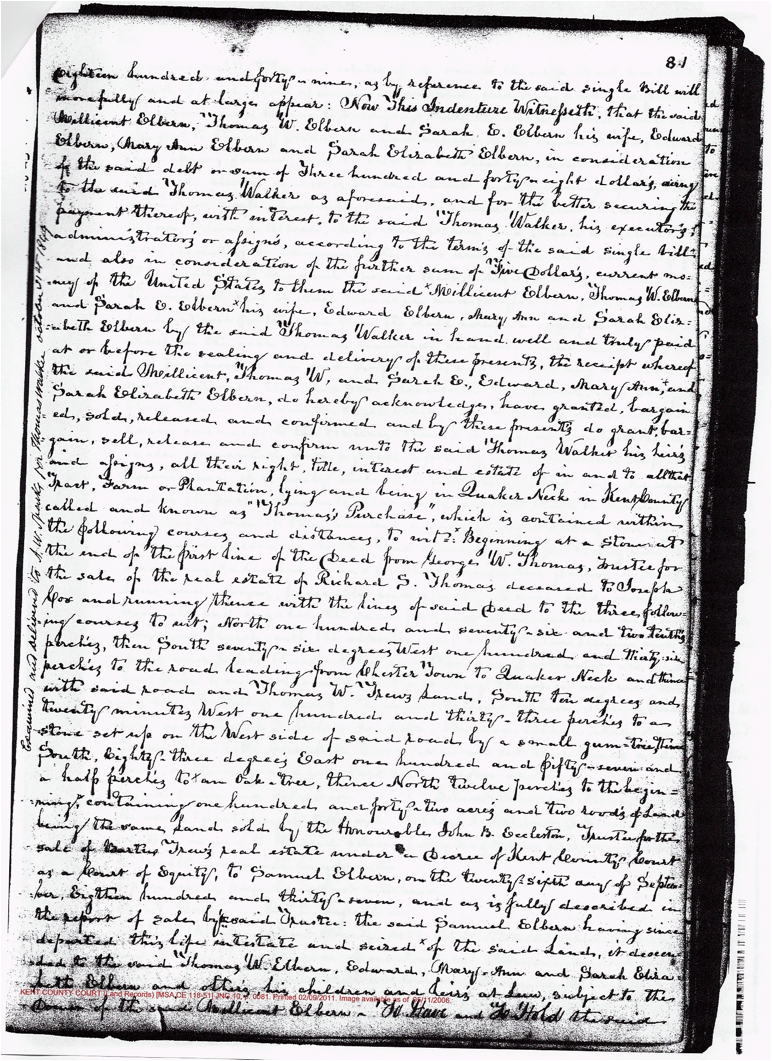 81
eighteen hundred and forty-nine, as by reference to the said single Bill will
more fully and at large appear: Now This Indenture Witnesseth, that the said
Millicent Elbern, Thomas W. Elbern and Sarah E. Elbern his wife, Edward
Elbern, Mary Ann Elbern and Sarah Elizabeth Elbern, in consideration
of the said debt or sum of Three hundred and forty-eight dollars, owing
to the said Thomas Walker as aforesaid, and for the better securing the
payment thereof, with interest, to the said Thomas Walker, his executors,
administrators or assigns, according to the terms of the said single bill
and also in consideration of the further sum of Five Dollars, current mo-
ney of the United States to them the said Millicent Elbern, Thomas W. Elbern
and Sarah E. Elbern his wife, Edward Elbern, Mary Ann and Sarah Eliz-
abeth Elbern by the said Thomas Walker in hand well and truly paid
at or before the sealing and delivery of these presents, the receipt whereof
the said Millicent, Thomas W, and Sarah E., Edward, Mary Ann, and
Sarah Elizabeth Elbern, do hereby acknowledge, have granted, bargain
ed, sold, released and confirmed and by these presents do grant, bar-
gain, sell, release and confirm unto the said Thomas Walker his heirs
and assigns, all their right, title, interest and estate of in and to all that
Tract, Farm or Plantation, lying and being in Quaker Neck in Kent County
called and known as "Thomas's Purchase", which is contained within
the following courses and distances, to wit: Beginning at a stone at
the end of the first line of the Deed from George W. Thomas, Trustee for
the sale of the real estate of Richard S. Thomas deceased to Joseph
Cox and running thence with the lines of said Deed to the three follow-
ing courses to wit; North one hundred and seventy-six and two tenths
perches, then South seventy-six degrees West one hundred and thirty-six
perches to the road leading from Chester Town to Quaker Neck and thence
with said road and Thomas W. Trews Land, South ten degrees and
twenty minutes West one hundred and thirty-three perches to a
stone set up on the West side of said road by a small gum-tree, then
South, Eighty-three degrees East one hundred and fifty-seven and
a half perches to an Oak-tree, thence North twelve perches to the begin-
ning, containing one hundred and forty-two acres and two roods of Land
being the same Land sold by the Honourable John B. Eccleston, Trustee for the
sale of Trew's real estate under a Decree of Kent County Court
as a Court of Equity, to Samuel Elbern, on the twenty-sixth day of Septem-
ber, Eighteen hundred and thirty-seven, and as is fully described in
the report of sale by said Trustee: the said Samuel Elbern having since
departed this life intestate and seized of the said Land, it descen-
ded to the said Thomas W. Elbern, Edward, Mary-Ann and Sarah Eliza
beth Elbern and others his children and heirs at Law, subject to the
Dower of the said Millicent Elbern - To Have and To Hold the said
Examined and delivered to S.W. Spencer for Thomas Walker October 31st 1849
KENT COUNTY COURT (Land Records) [MSA CE 118-51] JNG 10, p. 0081. Printed 02/09/2011. Image available as of 05/11/2006.